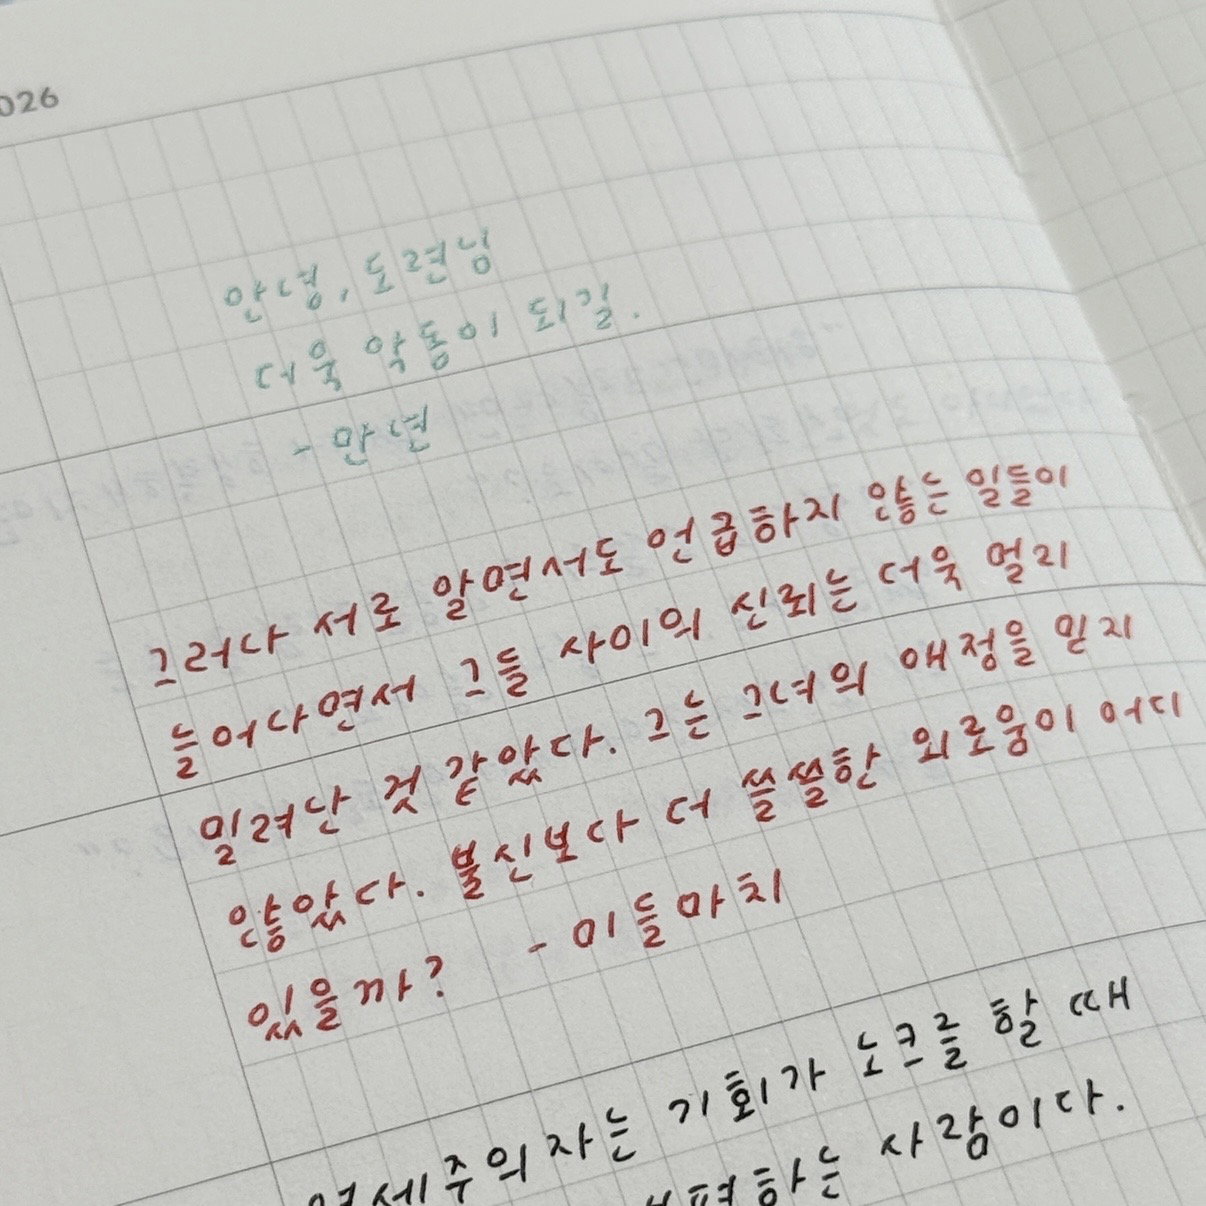 026
안녕, 도련님
더욱 악동이 되길.
- 만년
그러나 서로 알면서도 언급하지 않는 일들이
늘어나면서 그들 사이의 신뢰는 더욱 멀리
밀려난 것 같았다. 그는 그녀의 애정을 믿지
않았다. 불신보다 더 쓸쓸한 외로움이 어디
있을까? - 미들마치
염세주의자는 기회가 노크를 할 때
불평하는 사람이다.